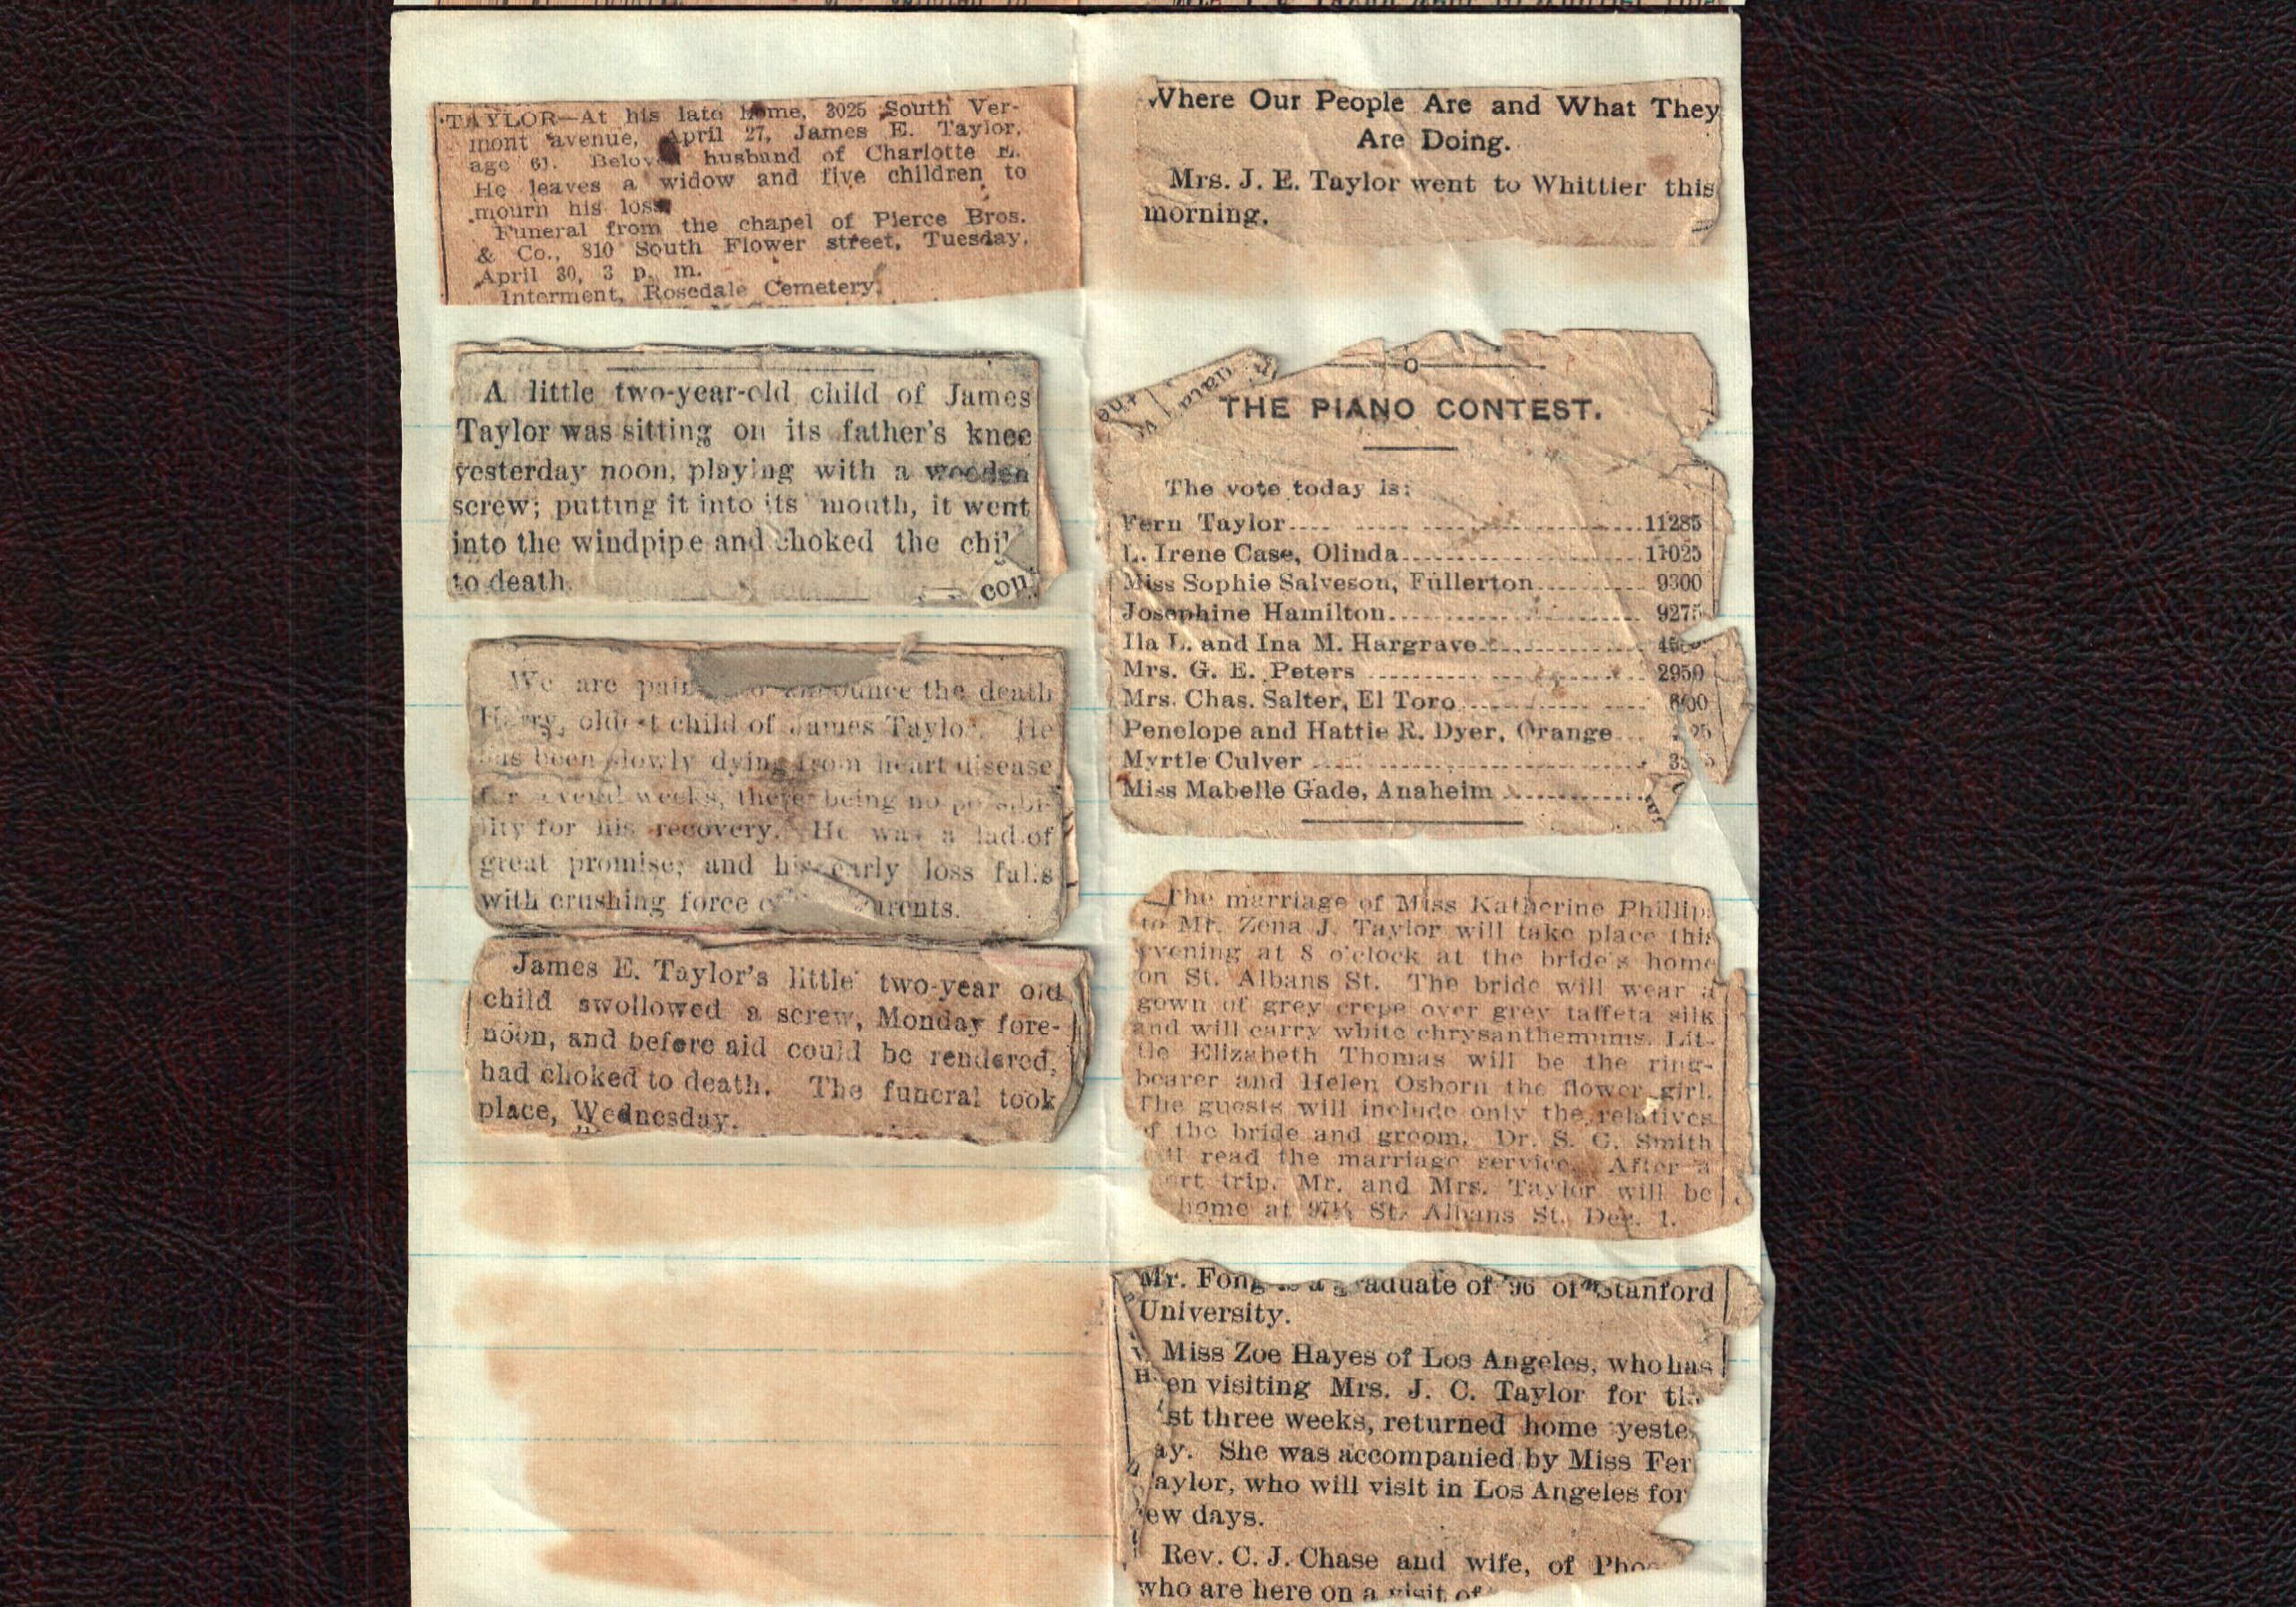 TAYLOR—At his late home, 3025 South Ver-
mont avenue, April 27, James E. Taylor,
age 61. Beloved husband of Charlotte E.
He leaves a widow and five children to
mourn his loss.
Funeral from the chapel of Pierce Bros.
& Co., 810 South Flower street, Tuesday,
April 30, 3 p. m.
Interment, Rosedale Cemetery.
A little two-year-old child of James
Taylor was sitting on its father's knee
yesterday noon, playing with a wooden
screw; putting it into its mouth, it went
into the windpipe and choked the
to death.
cou
We are announce the death
Harry, oldest child of James Taylor. He
has been slowly dying from heart disease
for several weeks, there being no possibi-
lity for his recovery. He was a lad of
great promise; and his early loss falls
with crushing force
James E. Taylor's little two-year old
child swollowed a screw, Monday fore-
noon, and before aid could be rendered,
had choked to death. The funeral took
place, Wednesday.
Where Our People Are and What They
Are Doing.
Mrs. J. E. Taylor went to Whittier this
morning.
THE PIANO CONTEST.
The vote today is:
Fern Taylor.... 11285
L. Irene Case, Olinda.... 11025
Miss Sophie Salveson, Fullerton.... 9300
Josephine Hamilton.... 9275
Ila L. and Ina M. Hargrave....
Mrs. G. E. Peters .... 2950
Mrs. Chas. Salter, El Toro....
Penelope and Hattie R. Dyer, Orange...
Myrtle Culver ....
Miss Mabelle Gade, Anaheim ....
The marriage of Miss Katherine Phillip
to Mr. Zena J. Taylor will take place this
evening at 8 o'clock at the bride's home
on St. Albans St. The bride will wear a
gown of grey crepe over grey taffeta silk
and will carry white chrysanthemums. Lit-
tle Elizabeth Thomas will be the ring-
bearer and Helen Osborn the flower girl.
The guests will include only the relatives
of the bride and groom. Dr. S. G. Smith
read the marriage service. After a
trip, Mr. and Mrs. Taylor will be
home at St. Albans St. Dec. 1.
Mr. Fong graduate of '96 of Stanford
University.
Miss Zoe Hayes of Los Angeles, who has
en visiting Mrs. J. C. Taylor for
st three weeks, returned home yeste
ay. She was accompanied by Miss Fer
aylor, who will visit in Los Angeles for
ew days.
Rev. C. J. Chase and wife, of
who are here on a visit of